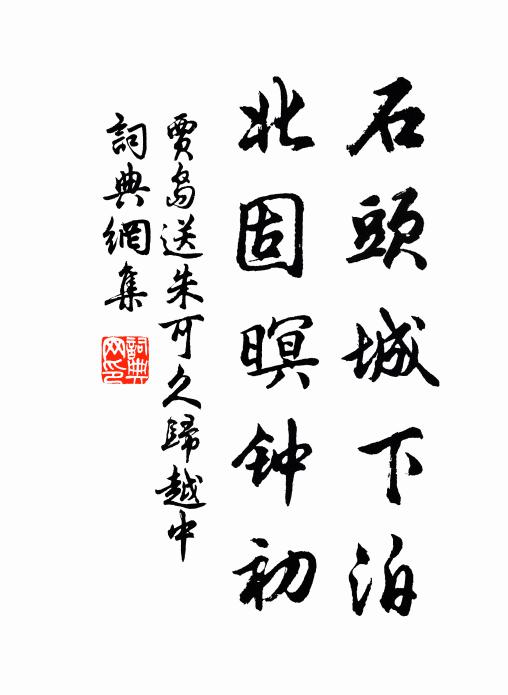 石頭城下泊
北固暝钟初
賈島送朱可久歸越中
詞典網集
詞典网印